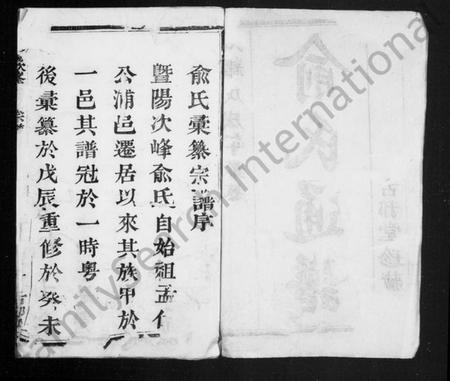 俞氏彙纂宗譜序
暨陽次峰俞氏自始祖孟仁
公浦邑遷居以來其族甲於
一邑其譜冠於一時粵
後彙纂於戊辰重修於癸未
俞氏通譜
FamilySearch International